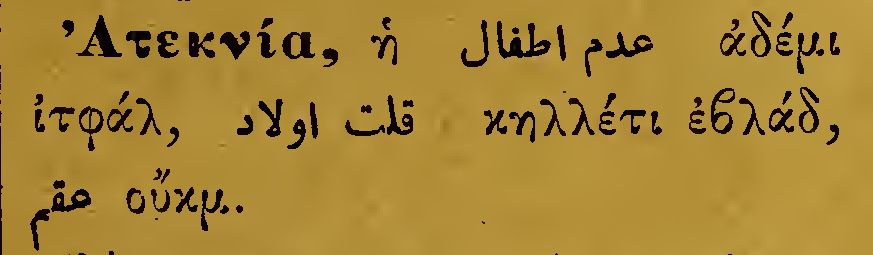 Ἀτεκνία, ἡ عدم اطفال ἀδέμι
ἰτφάλ, قلت اولاد κηλλέτι ἐβλάδ,
عقم οὔκμ.